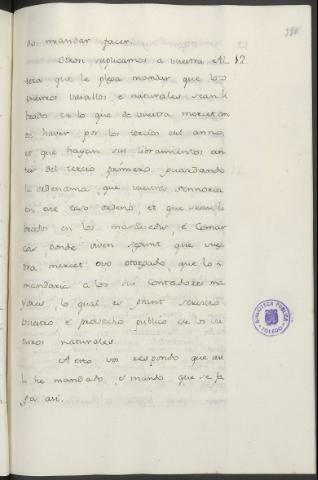 do mandar facer.
Otrosi suplicamos a vuestra Al 12.
teza que le plega mandar que los
vuestros vasallos, e naturales sean li
brados en lo que de vuestra merced an
de hayer por los tercios del anno,
et que hayan sus libramientos an
tes del tercio primero guardando
la ordenanza, que vuestra sennoria
en este caso ordenó, et que sean li
brados en los
cas, donde viven segunt que vues
tra merced ovo otorgado, que lo
mandaria a los sus Contadores ma
yores, lo qual es grant servicio
vuestro e provecho publico de los vu
estros naturales.
A esto vos respondo que asi
lo he mandado, e mando que se fa
ga asi.
BIBLIOTECA PUBLICA
TOLEDO